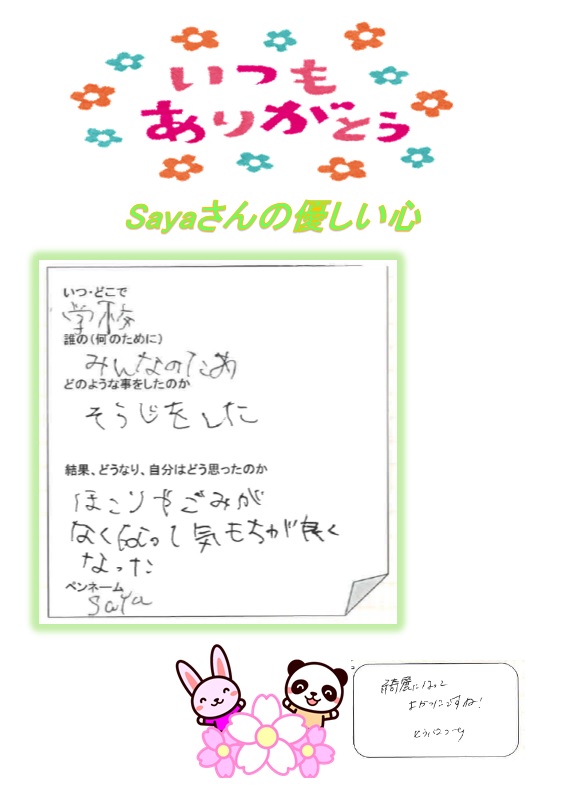 いつも
ありがとう
Sayaさんの優しい心
いつ・どこで
学校
誰の（何のために）
みんなのため
どのような事をしたのか
そうじをした
結果、どうなり、自分はどう思ったのか
ほこりやごみが
なくなって気もちが良く
なった
ペンネーム
saya
綺麗になって
よかったですね！